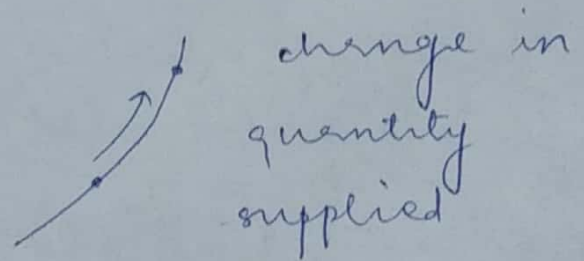 change in
quantity
supplied